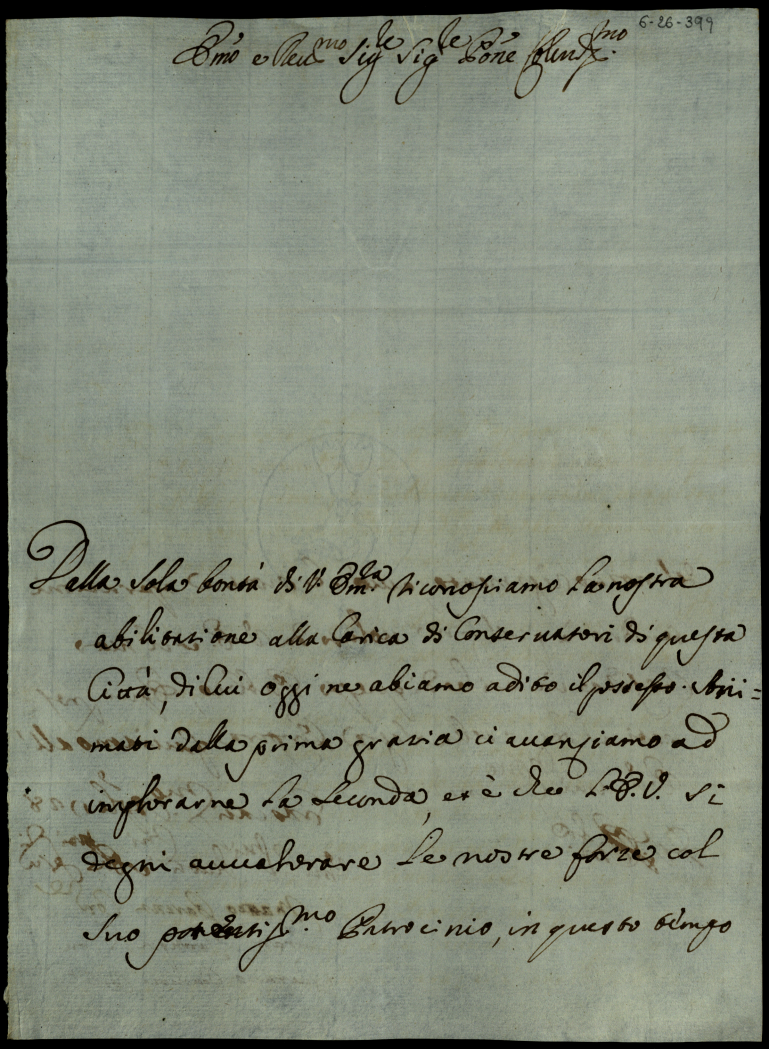 6-26-399
Emo e Reumo Sigle Sigle Pone Colendmo.
Dalla sola bontà di V. Emza riconosciamo la nostra
abilitatione alla Carica di Conseruatori di questa
Città, di Cui oggi ne abiamo adito il possesso. Ani=
mati dalla prima gratia ci auansiamo ad
implorarne la seconda, et è che l'E.V. si
degni auualorare le nostre forze col
suo potentissmo. Patrocinio, in questo tempo